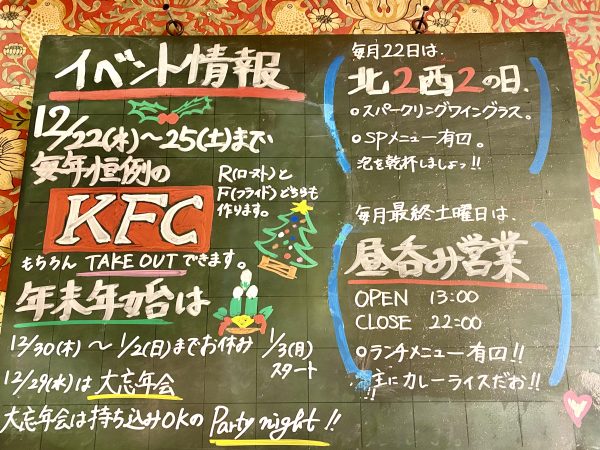 イベント情報
12/22(水)〜25(土)まで
毎年恒例の
KFC
R(ロースト)と
F(フライド)どちらも
作ります。
もちろん TAKE OUT できます。
年末年始は
12/30(木) 〜 1/2(日)までお休み
1/3(月)
スタート
12/29(水)は 大忘年会
大忘年会は持ち込みOKの Party night!!
毎月22日は、
北2西2の日、
○スパークリングワイングラス。
○SPメニュー有四。
泡を乾杯しましょっ!!
毎月最終土曜日は、
昼呑み営業
OPEN 13:00
CLOSE 22:00
○ランチメニュー有四!!
主にカレーライスだお!!